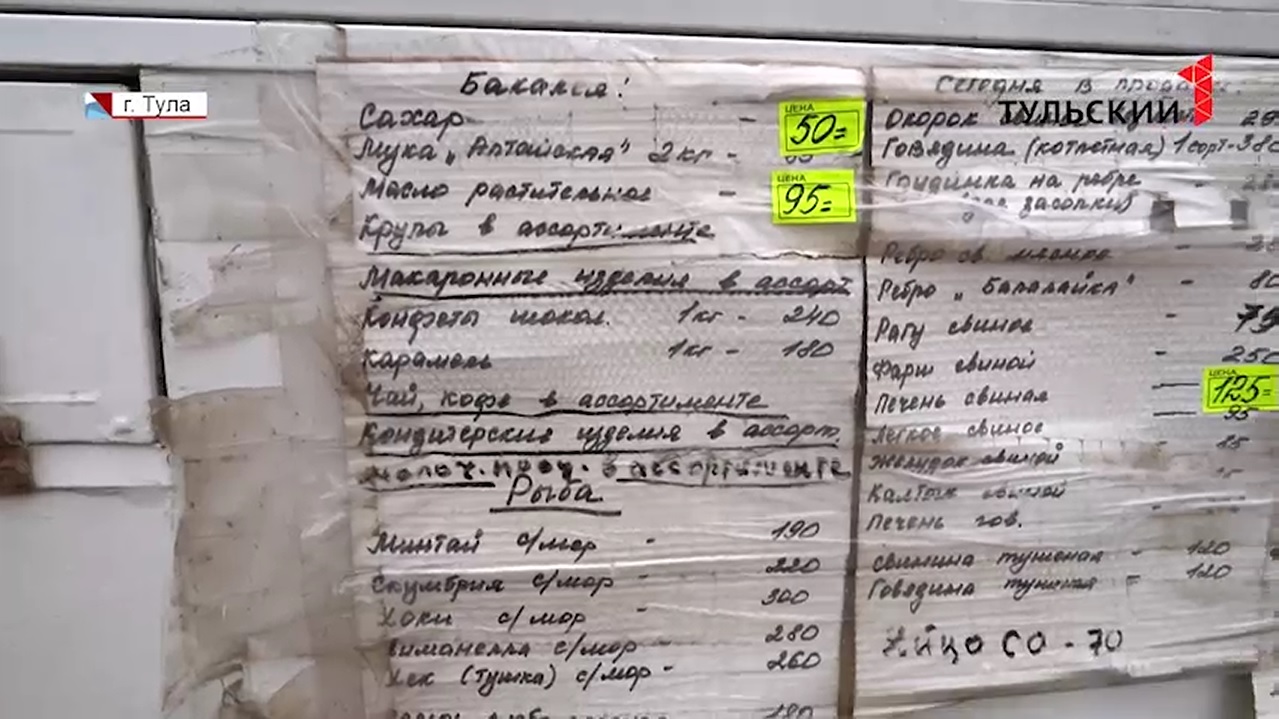 г. Тула
ТУЛЬСКИЙ 1
Бакалея:
Сахар - ЦЕНА 50=
Мука „Алтайская" 2 кг -
Масло растительное - ЦЕНА 95=
Крупы в ассортименте
Макаронные изделия в ассорт
Конфеты шокол. 1кг - 240
Карамель 1кг - 180
Чай, кофе в ассортименте
Кондитерские изделия в ассорт.
Молоч. прод. в ассортименте
Рыба
Минтай с/мор - 190
Скумбрия с/мор - 220
Хоки с/мор - 300
с/мор - 280
Хек (тушка) с/мор - 260
180
Сегодня в
Окорок
Говядина (котлетная) 1 сорт - 380
на ребре
засолки)
Ребро св.
Ребро „Балалайка" - 80
Рагу свиное 75
Фарш свиной - 250
Печень свиная ЦЕНА 125=
Легкое свиное 95
Желудок свиной
Калтык свиной
Печень гов.
свинина тушеная - 120
Говядина тушеная - 120
Яйцо СО - 70